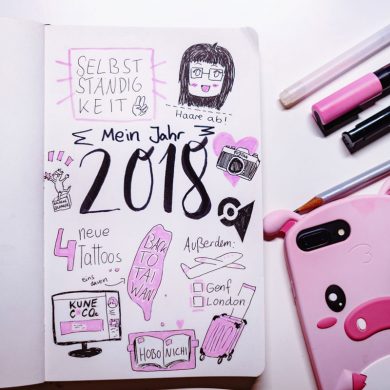 SELBST
STÄNDIG
KEIT
Haare ab!
Mein Jahr
2018
4 neue
Tattoos
eins davon
BACK
TO
TAI
WAN
Außerdem:
Genf
London
KUNE
COCO
HOBO NICHI